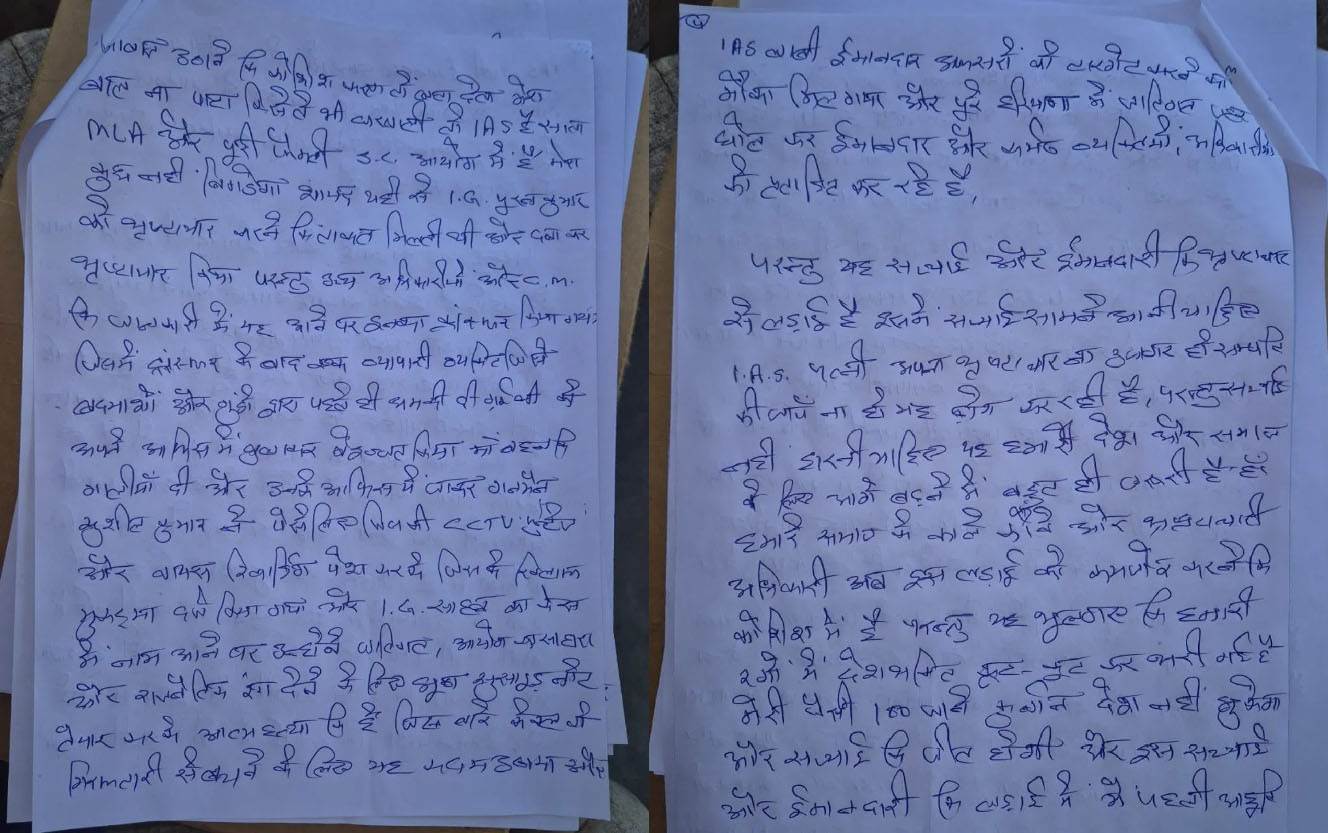 आवाज उठाने कि कोशिश करता है कह देता मेरा
बाल ना पाटा किसीते भी घरवाली तो IAS है साला
MLA और पुरी फैमली S.C. आयोग में है मेरा
कुछ नही बिगडेगा शायद यही से I.G. पुरन कुमार
को भ्रष्टाचार करने कि ताकत मिलती थी और दबा कर
भ्रष्टाचार किया परन्तु उच्च अधिकारीयों और C.M.
कि जानकारी में यह आने पर इनका ट्रांसफर किया गया
जिसमें ट्रांसफर के बाद एक व्यापारी व्यक्ति जिसे
बदमाशों और गुंडो द्वारा पहले ही धमकी दी गई थी को
अपने आफिस में बुलाकर बेइज्जत किया माँ बहन कि
गालीयाँ दी और उनके आफिस में जाकर गनमैन
सुशील कुमार ने पैसे लिए जिसकी CCTV फुटेज
और वायस रिकार्डिंग पेश करदी जिसके खिलाफ
मुकदमा दर्ज किया गया और I.G. साहब का केस
में नाम आने पर उन्होंने जातिवाद, आयोग का सहारा
और राजनैतिक रंग देने के लिए झूठा सुसाइड नोट
तैयार करके आत्महत्या कि है जिस बारे केस में
गिरफ्तारी से बचने के लिए यह कदम उठाया और
4
IAS लाबी ईमानदार अफसरों को टारगेट करने का
मौका मिल गया और पुरे हरियाणा में जातिवाद जहर
घोल कर ईमानदार और कर्मठ व्यक्तियों, अधिकारीयों
को प्रताडित कर रहे है,
परन्तु यह सच्चाई और ईमानदारी कि भ्रष्टाचार
से लड़ाई है इसमें सच्चाई सामने आनी चाहिए
I.A.S. पत्नी अपना भ्रष्टाचार का उजागर हो सम्पति
की जाँच ना हो यह ढोंग कर रही है, परन्तु सच्चाई
नही हारनी चाहिए यह हमारे देश और समाज
के लिए आगे बढ़ने में बहुत ही जरूरी है
हमारे समाज के काले और भ्रष्टाचारी
अधिकारी अब इस लड़ाई को कमजोर करने कि
कोशिश में है परन्तु यह भुलगए कि हमारी
रगों में देशभक्ति कूट-कूट कर भरी गई है
मेरी जैसी 100 जाने कुर्बान देश नही झुकेगा
और सच्चाई कि जीत होगी और इस सच्चाई
और ईमानदारी कि लड़ाई में मैं पहली आहुति